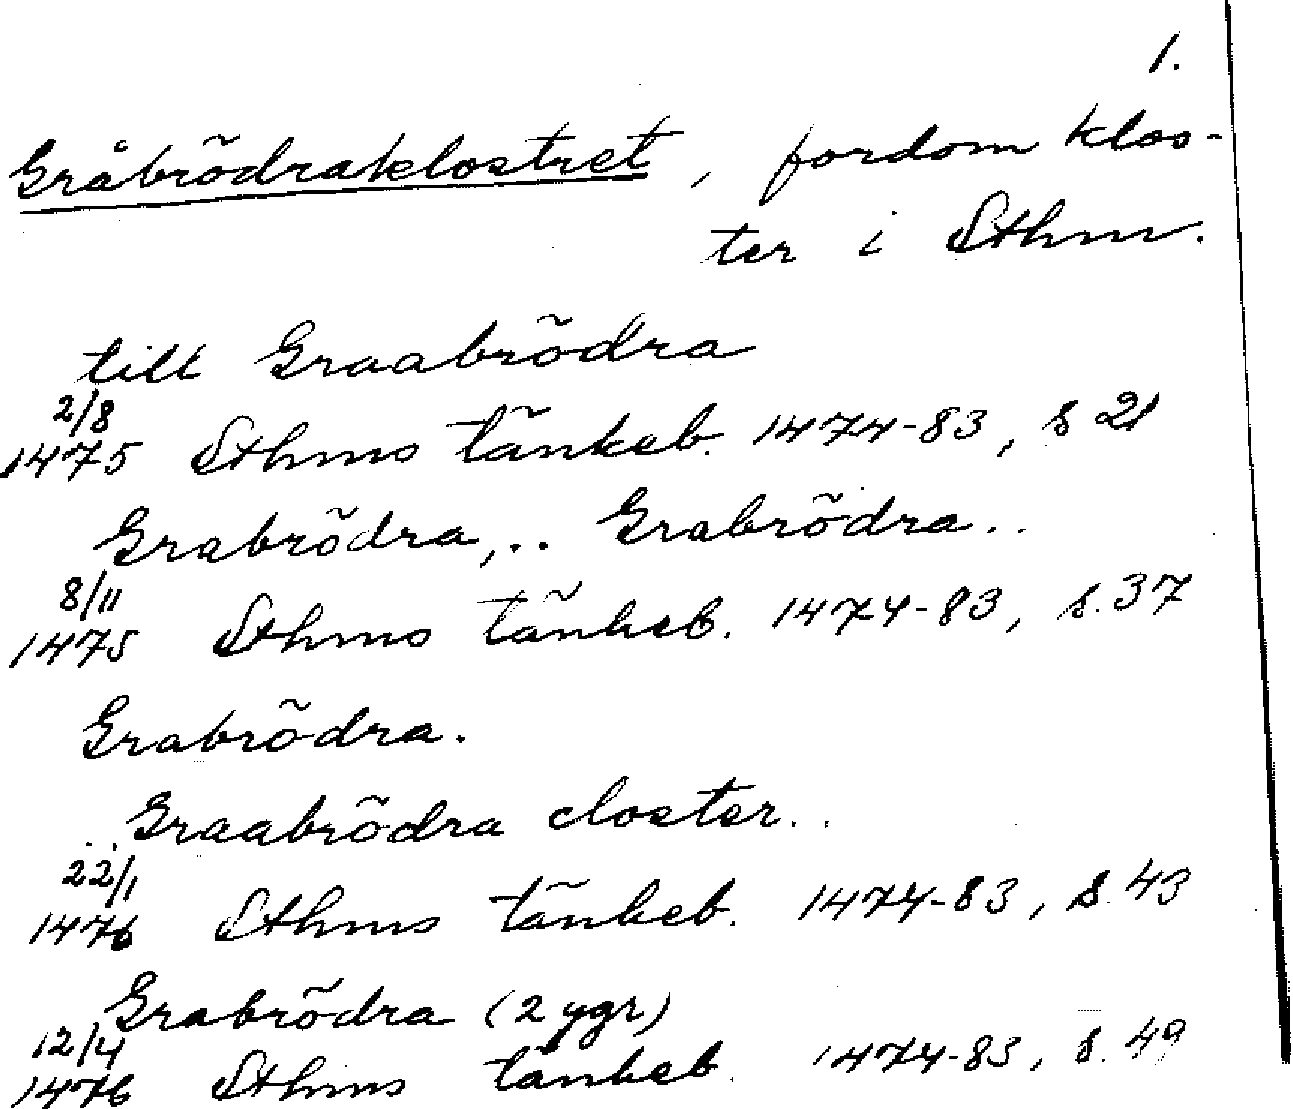 1.
Gråbrödraklostret, fordom klos-
ter i Sthm.
till Graabrödra
2/8
1475 Sthms tänkeb. 1474-83, s 21
Grabrödra,.. Grabrödra..
8/11
1475 Sthms tänkeb. 1474-83, s. 37
Grabrödra.
..Graabrödra closter..
22/1
1476 Sthms tänkeb. 1474-83, s. 43
Grabrödra (2 ggr)
12/4
1476 Sthms tänkeb. 1474-83, s. 49